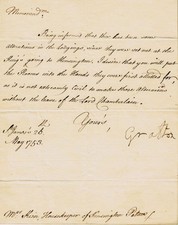 Being informed that there has been some
alterations in the Lodgings, since they were set out at the
King's going to Kensington, I desire that you will put
the Rooms into the Hands they were first allotted for,
as it is not extremely Civil to make these Alterations
without the leave of the Lord Chamberlain.
Yours,
May 1753
Housekeeper of Kensington Palace